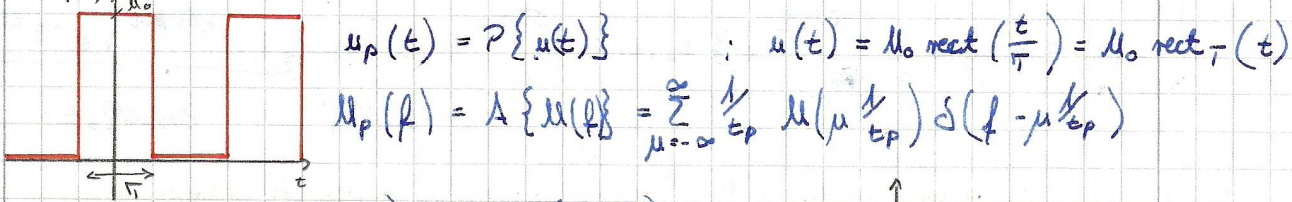 u₀
uₚ(t) = P{u(t)} ; u(t) = U₀ rect(t/T) = U₀ rect_T(t)
Uₚ(f) = A{U(f)} = ∑_{μ=-∞}^{∞} 1/tₚ U(μ 1/tₚ) δ(f - μ 1/tₚ)
T t